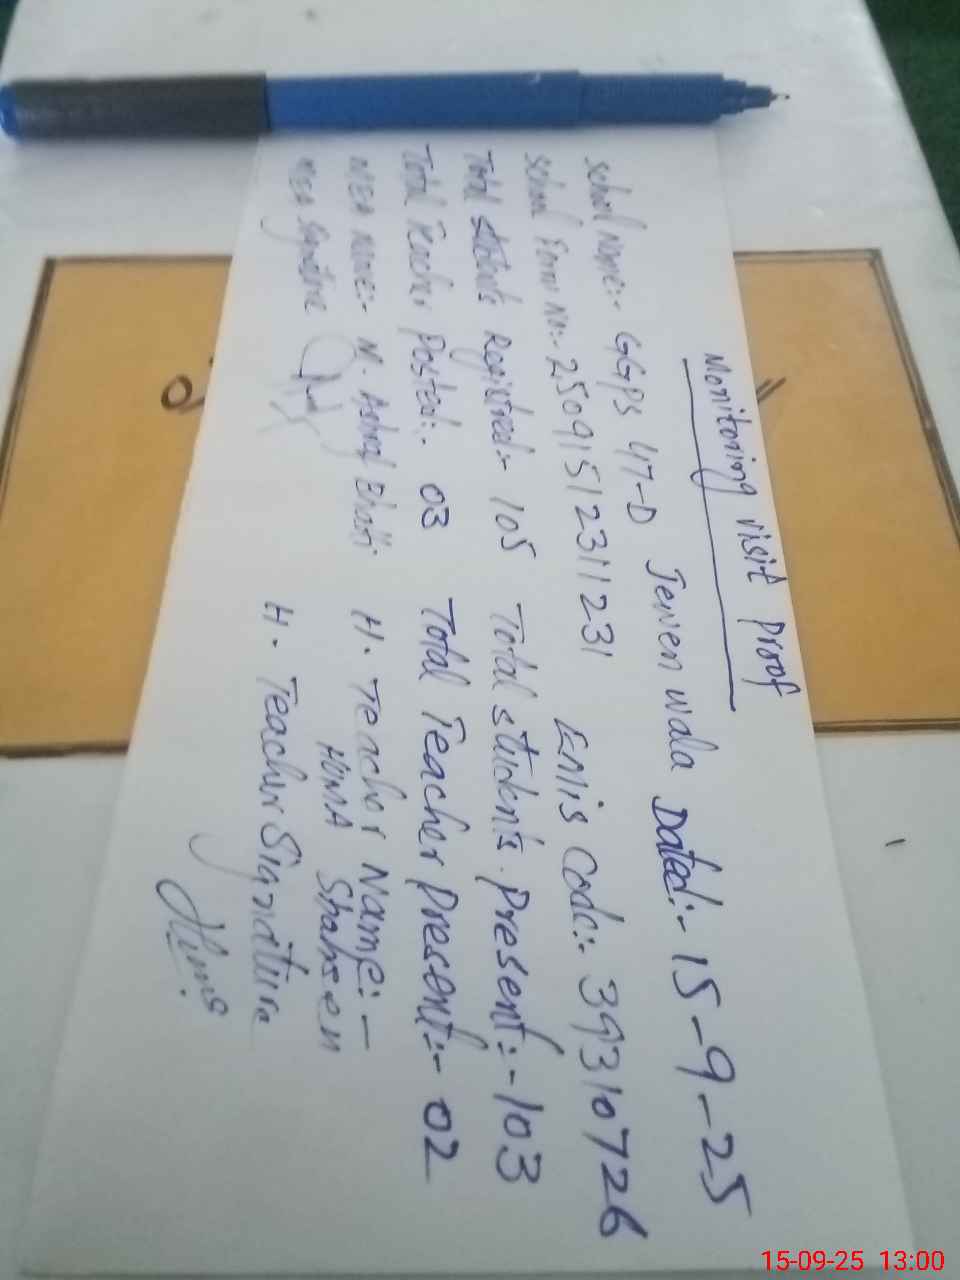 Monitoring visit Proof
School Name:- GGPS 47-D Jewen wala Dated:- 15-9-25
School Form No:- 25091512311231 EMIS Code:- 39310726
Total students Registred:- 105 Total students. Present:- 103
Total Teacher Posted:- 03 Total Teacher Present:- 02
MEA NAME:- M. Ashraf Bhatti H. Teacher Name:-
HUMA Shaheen
MEA Signature H. Teacher Signature
Huma
15-09-25 13:00